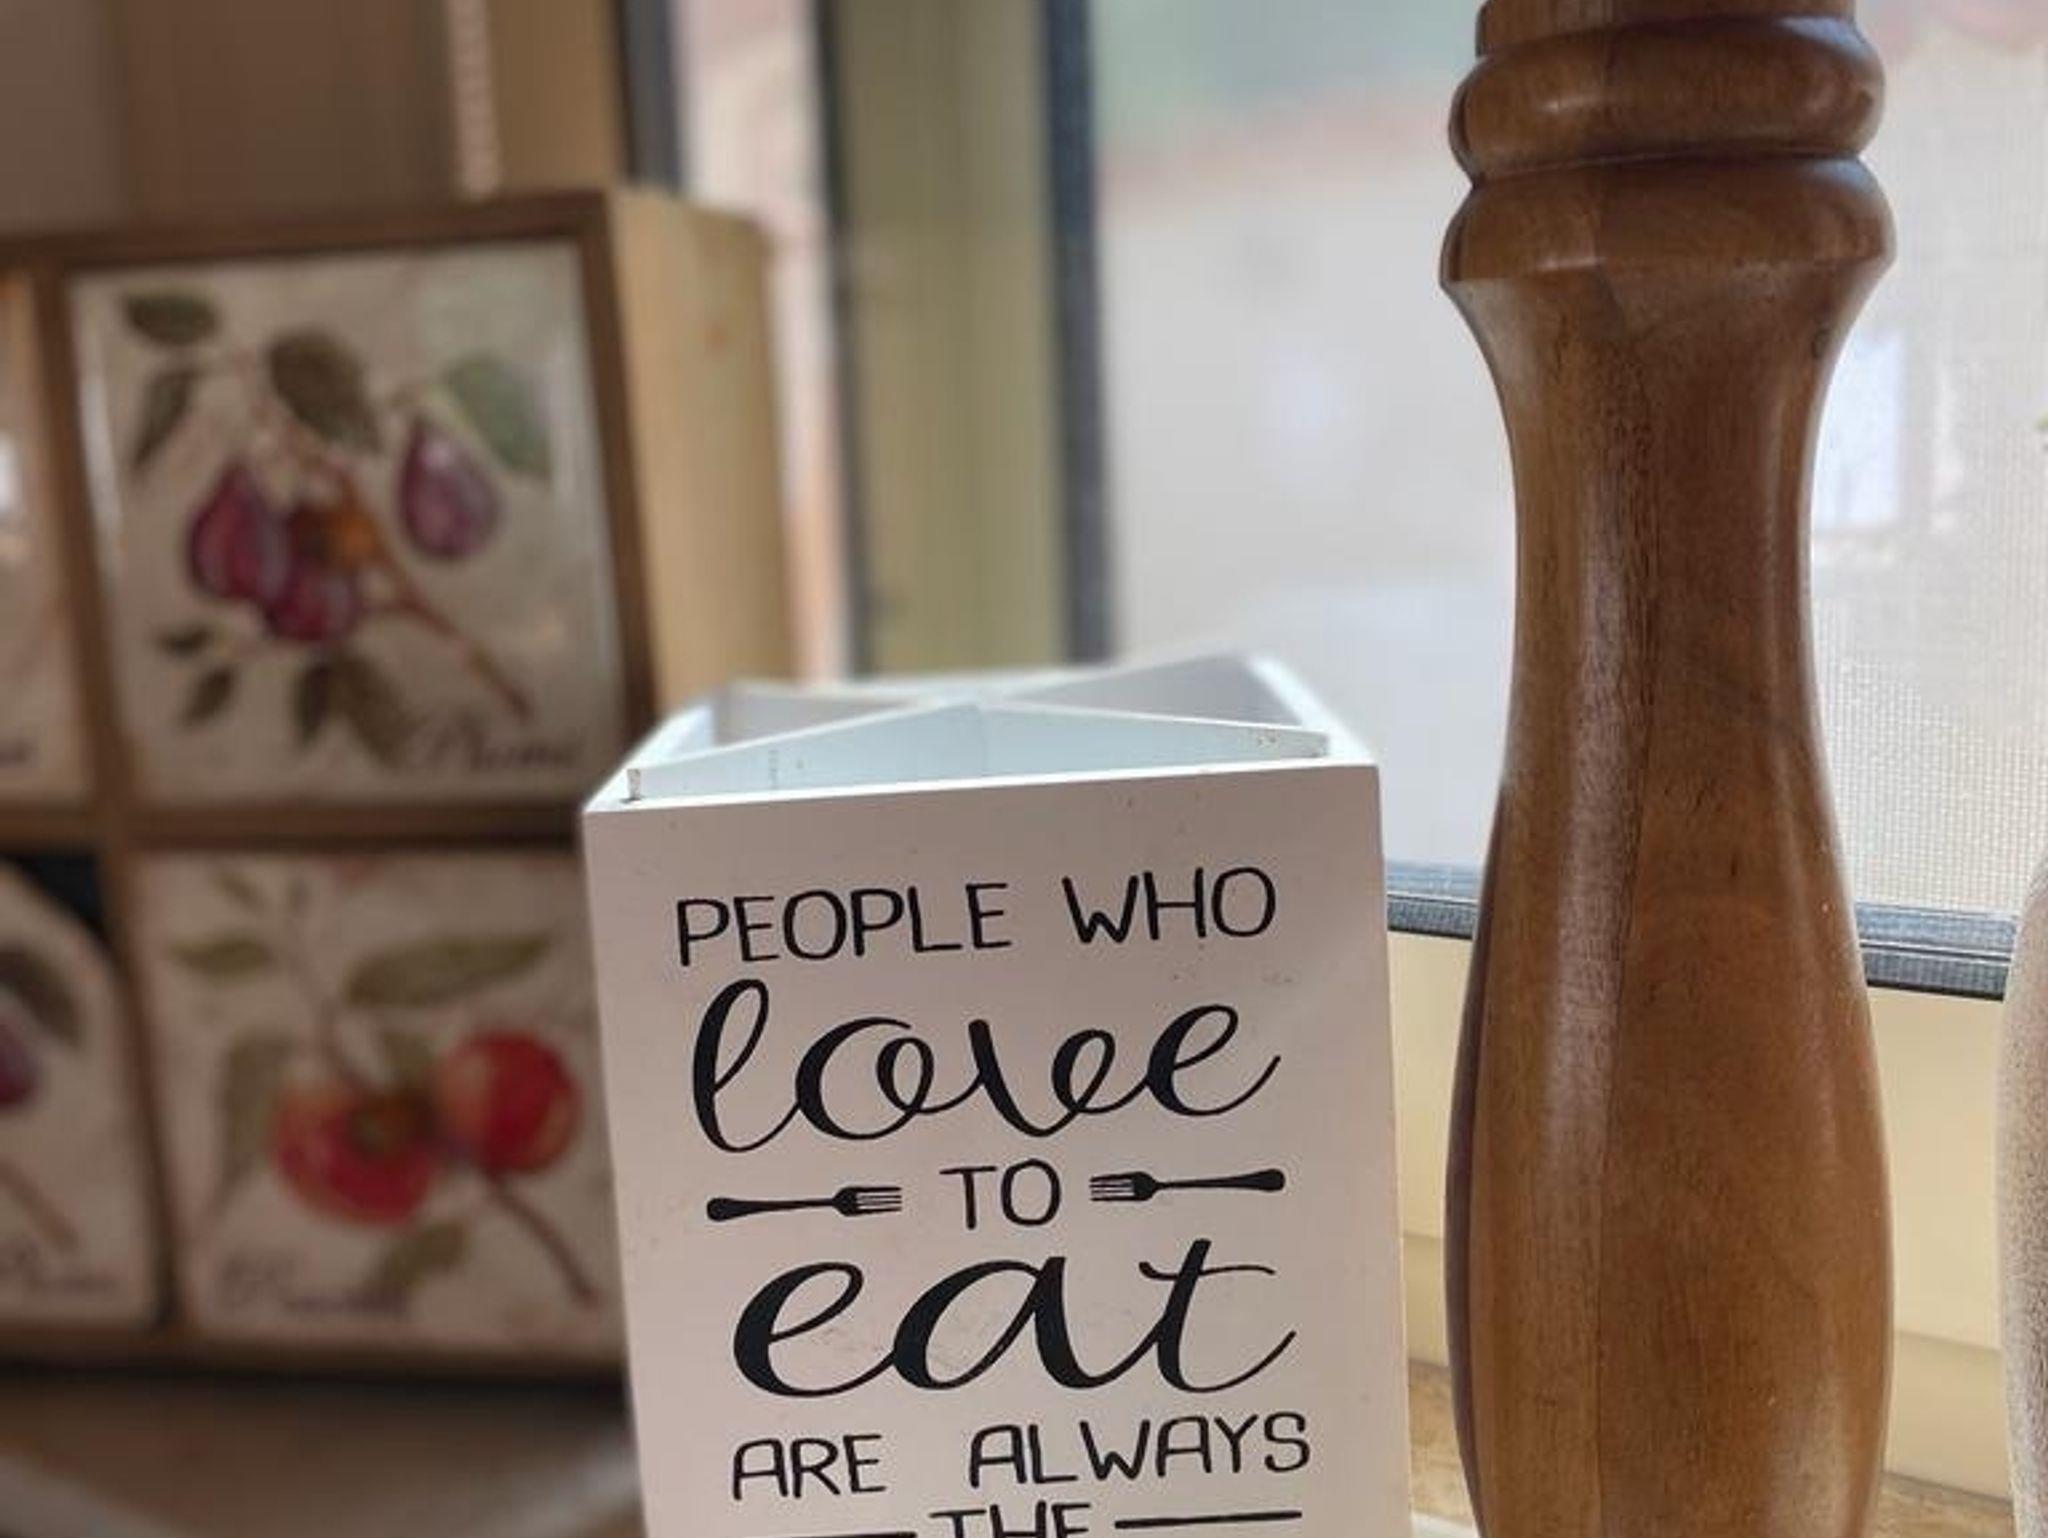 PEOPLE WHO
love
TO
eat
ARE ALWAYS
THE